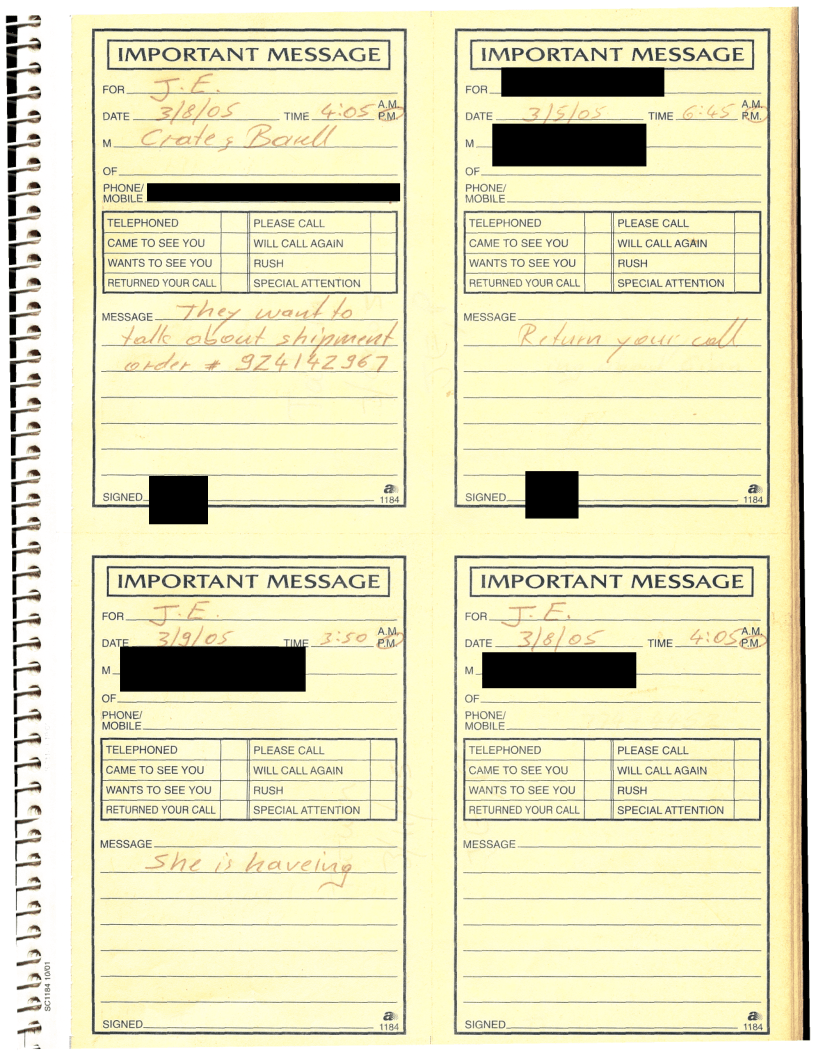 IMPORTANT MESSAGE
FOR J.E.
DATE 3/8/05 TIME 4:05 A.M. P.M.
M Crate & Barell
OF
PHONE/
MOBILE
TELEPHONED PLEASE CALL
CAME TO SEE YOU WILL CALL AGAIN
WANTS TO SEE YOU RUSH
RETURNED YOUR CALL SPECIAL ATTENTION
MESSAGE They want to
talk about shipment
order # 924142967
SIGNED
a
1184
IMPORTANT MESSAGE
FOR
DATE 3/5/05 TIME 6:45 A.M. P.M.
M
OF
PHONE/
MOBILE
TELEPHONED PLEASE CALL
CAME TO SEE YOU WILL CALL AGAIN
WANTS TO SEE YOU RUSH
RETURNED YOUR CALL SPECIAL ATTENTION
MESSAGE
Return your call
SIGNED
a
1184
IMPORTANT MESSAGE
FOR J.E.
DATE 3/9/05 TIME 3:50 A.M. P.M.
M
OF
PHONE/
MOBILE
TELEPHONED PLEASE CALL
CAME TO SEE YOU WILL CALL AGAIN
WANTS TO SEE YOU RUSH
RETURNED YOUR CALL SPECIAL ATTENTION
MESSAGE
She is haveing
SIGNED
a
1184
IMPORTANT MESSAGE
FOR J.E.
DATE 3/8/05 TIME 4:05 A.M. P.M.
M
OF
PHONE/
MOBILE
TELEPHONED PLEASE CALL
CAME TO SEE YOU WILL CALL AGAIN
WANTS TO SEE YOU RUSH
RETURNED YOUR CALL SPECIAL ATTENTION
MESSAGE
SIGNED
a
1184
SC1184 10/01